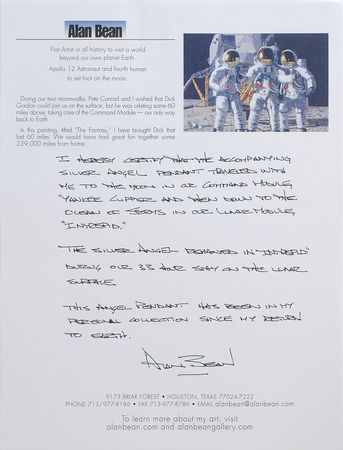 Alan Bean
First Artist in all history to visit a world
beyond our own planet Earth.
Apollo 12 Astronaut and fourth human
to set foot on the moon.
During our two moonwalks, Pete Conrad and I wished that Dick
Gordon could join us on the surface, but he was orbiting some 60
miles above, taking care of the Command Module — our only way
back to Earth.
In this painting, titled "The Fantasy," I have brought Dick that
last 60 miles. We would have had great fun together some
239,000 miles from home.
I HEREBY CERTIFY THAT THE ACCOMPANYING
SILVER ANGEL PENDANT TRAVELED WITH
ME TO THE MOON IN OUR COMMAND MODULE,
"YANKEE CLIPPER" AND THEN DOWN TO THE
OCEAN OF STORMS IN OUR LUNAR MODULE,
"INTREPID."
THE SILVER ANGEL REMAINED IN "INTREPID"
DURING OUR 33 HOUR STAY ON THE LUNAR
SURFACE.
THIS ANGEL PENDANT HAS BEEN IN MY
PERSONAL COLLECTION SINCE MY RETURN
TO EARTH.
ALAN BEAN
9173 BRIAR FOREST • HOUSTON, TEXAS 77024-7222
PHONE 713/977-8186 • FAX 713-977-8786 • EMAIL alanbean@alanbean.com
To learn more about my art, visit
alanbean.com and alanbeangallery.com